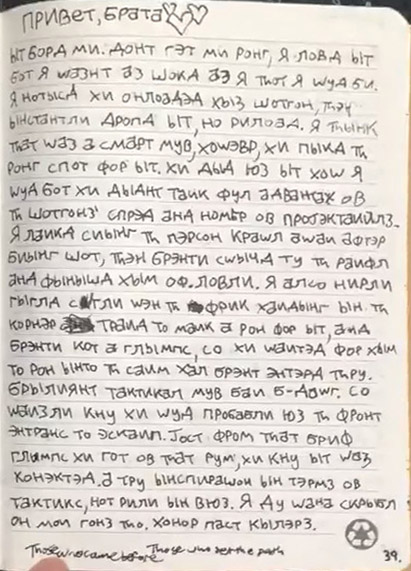 ПРИВЕТ, БРАТА
ЫТ БОРД МИ. ДОНТ ГЭТ МИ РОНГ, Я ЛОВД ЫТ
БОТ Я WАЗНТ АЗ ШОКД АЗ Я ТНОТ Я WУД БИ.
Я НОТЫСД ХИ ОНЛОДЭД ХЫЗ ШОТГОН, ТНЭН
ЫНСТАНТЛИ ДРОПД ЫТ, НО РИЛОДД. Я ТНЫНК
ТНАТ WАЗ А СМАРТ МУВ, ХОWЭВР, ХИ ПЫКД ТН
РОНГ СПОТ ФОР ЫТ. ХИ ДЫД ЮЗ ЫТ ХОW Я
WУД БОТ ХИ ДЫДНТ ТАЙК ФУЛ АДВАНТЭЖ ОВ
ТН ШОТГОНЗ' СПРЭД АНД НОМБР ОВ ПРОДЖЭКТАЙЛЗ.
Я ЛАЙКД СИЫНГ ТН ПЭРСОН КРАWЛ АWАЙ АФТЭР
БИЫНГ ШОТ, ТНЭН БРЭНТИ СWЫЧД ТУ ТН РАЙФЛ
АНД ФЫНЫШД ХЫМ ОФ. ЛОВЛИ. Я АЛСО НИРЛИ
ГЫГЛД WЭН ТН ФРИК ХАЙДЫНГ ЫН ТН
КОРНЭР ТРАЙД ТО МАЙК А РОН ФОР ЫТ, АНД
БРЭНТИ КОТ А ГЛЫМПС, СО ХИ WАЙТЭД ФОР ХЫМ
ТО РОН ЫНТО ТН САЙМ ХАЛ БРЭНТ ЭНТЭРД ТНРУ.
БРЫЛИЯНТ ТАКТИКАЛ МУВ БАЙ Б-ДАWГ. СО
WАЙЗЛИ КНУ ХИ WУД ПРОБАБЛИ ЮЗ ТН ФРОНТ
ЭНТРАНС ТО ЭСКАЙП. ЈОСТ ФРОМ ТНАТ БРИФ
ГЛЫМПС ХИ ГОТ ОВ ТНАТ РУМ, ХИ КНУ ЫТ WАЗ
КОНЭКТЭД. А ТРУ ЫНСПИРАШОН ЫН ТЭРМЗ ОВ
ТАКТИКС, НОТ РИЛИ ЫН ВЮЗ. Я ДУ WАНА СКРЫБЛ
ОН МОЙ ГОНЗ ТНО, ХОНОР ПАСТ КЫЛЭРЗ.
Those who came before Those who set the path
39.